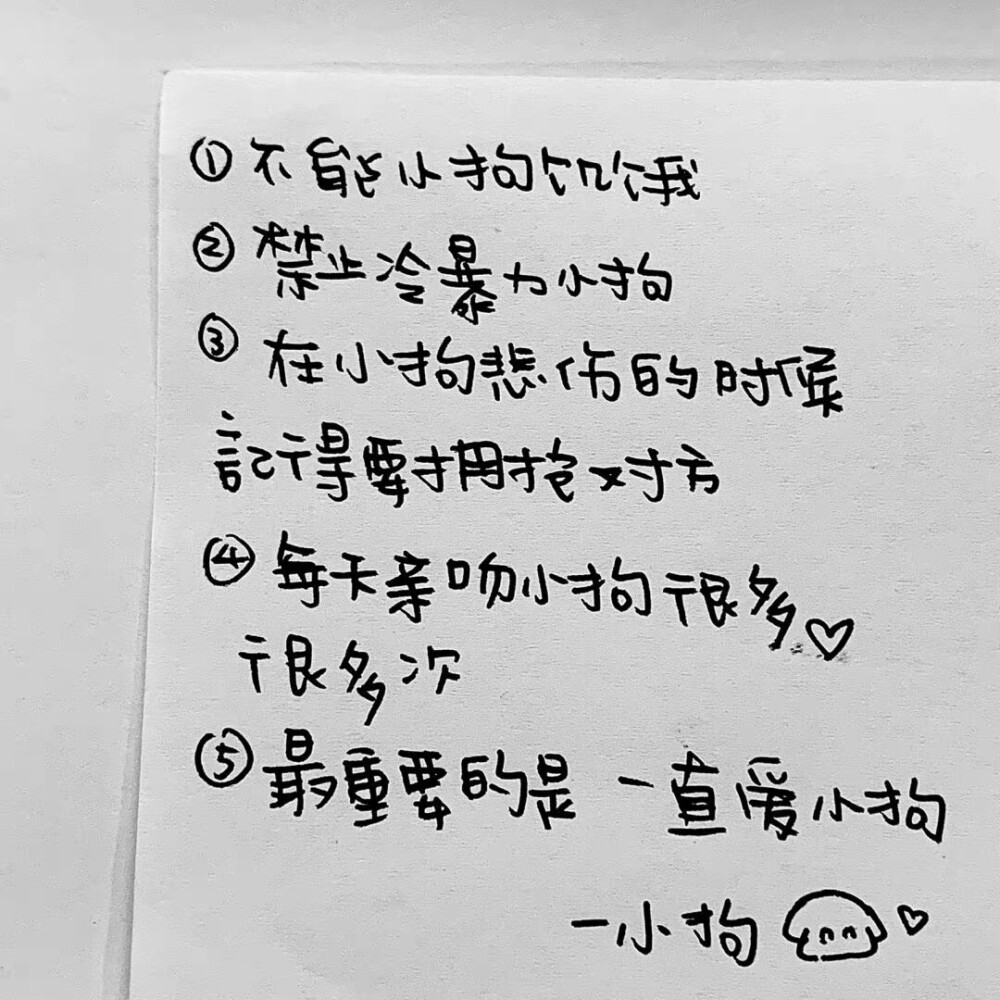 ① 不能小狗饥饿
② 禁止冷暴力小狗
③ 在小狗悲伤的时候
記得要拥抱对方
④ 每天亲吻小狗很多♡
很多次
⑤ 最重要的是 一直爱小狗
一小狗 ♡